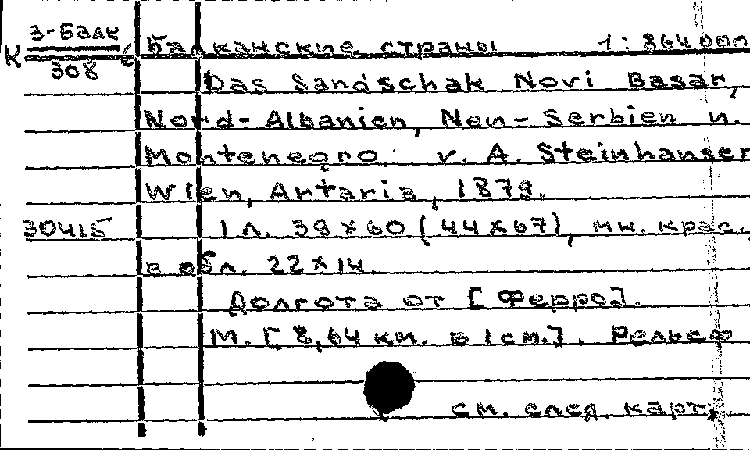 К 3-Балк
308
Балканские страны 1:864000
Das Sandschak Novi Basar,
Nord-Albanien, Neu-Serbien u.
Montenegro. v. A. Steinhauser
Wien, Artaria, 1879.
30415 1 л. 38x60 (44x67), мн. крас.,
в обл. 22x14.
Долгота от [Ферро].
М. [8,64 км. в 1 см.]. Рельеф
см. след. карт.